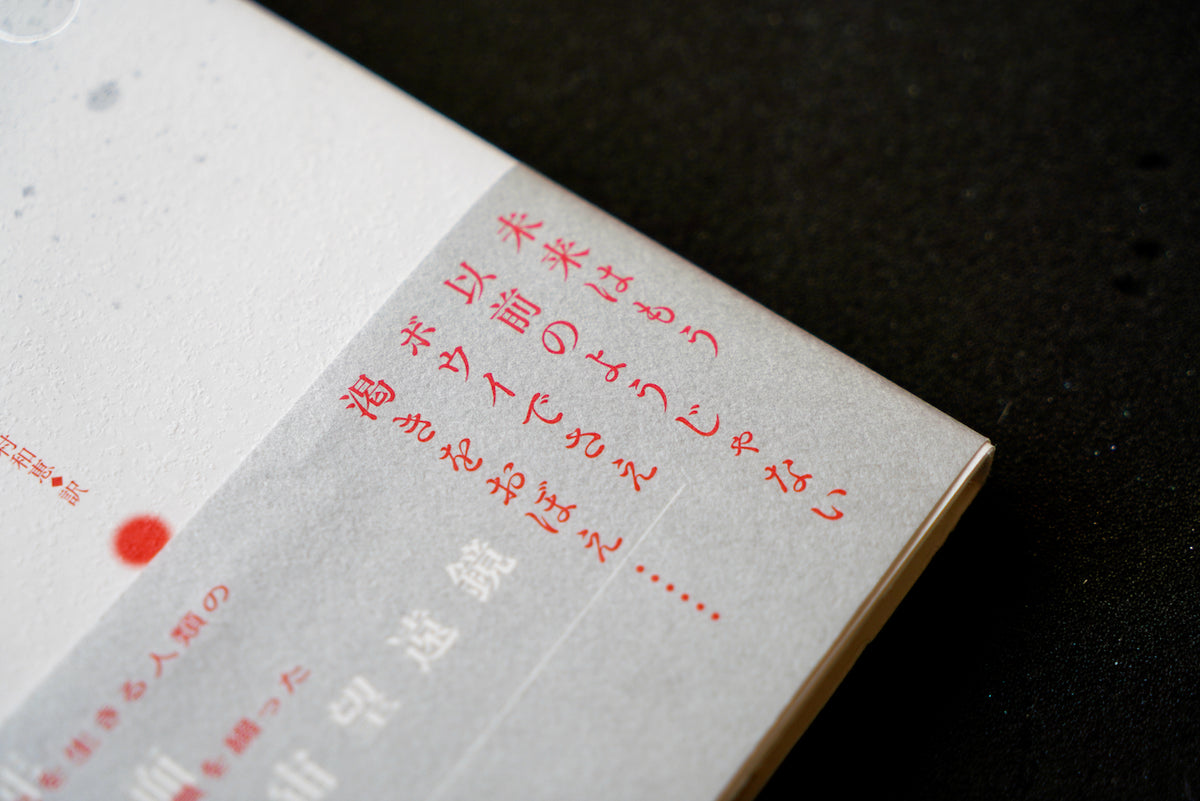 未来はもう
以前のようじゃない
ボウイでさえ
渇きをおぼえ……
村和恵◆訳
を生きる人類の
を綴った
望遠鏡